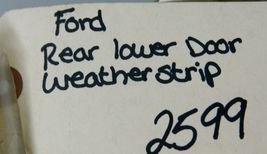 Ford
Rear lower Door
weather strip
2599